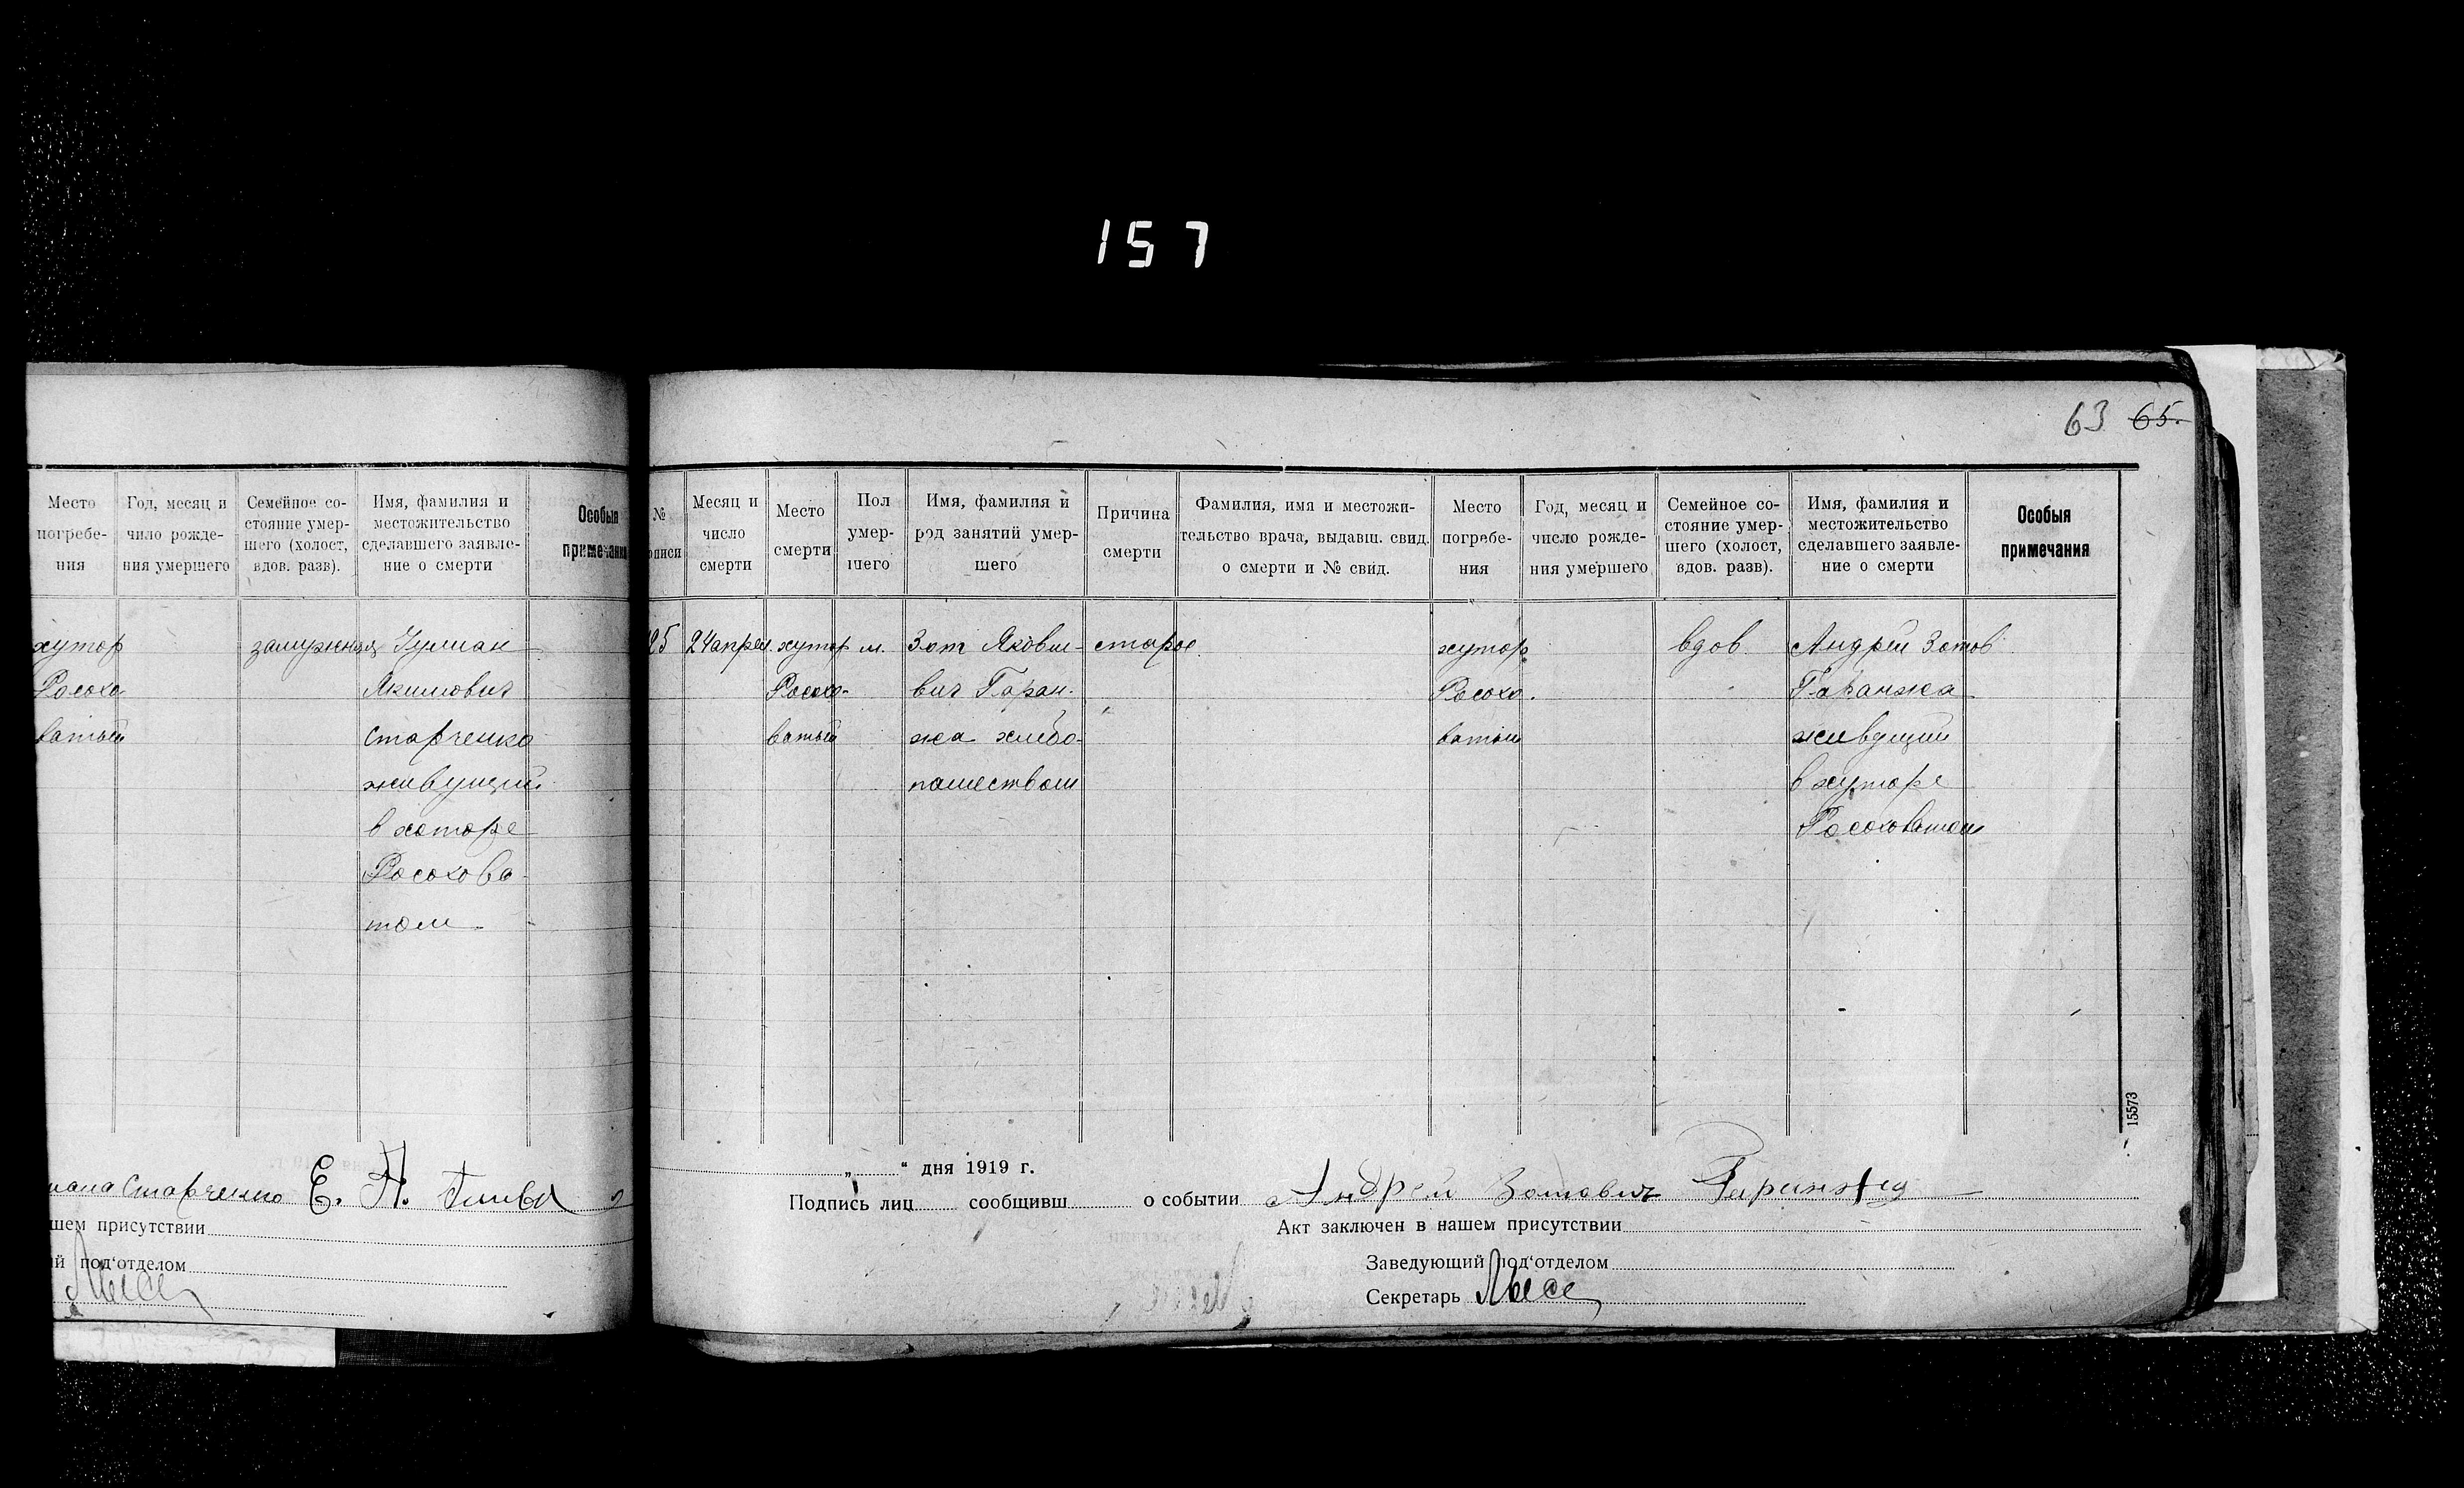 157
63 65.
Место погребения
Год, месяц и чило рождения умершего
Семейное состояние умершего (холост, вдов. разв).
Имя, фамилия и местожительство сделавшего заявление о смерти
Особыя примечания
хутор замужняя
Росохо Якимович
ватый Старченко
живущий
в хоторе
Росохова
том
Старченко Е. Н.
шем присутствии
й под‘отделом
№ описи
Месяц и число смерти
Место смерти
Пол умершего
Имя, фамилия и род занятий умершего
Причина смерти
Фамилия, имя и местожительство врача, выдавш. свид. о смерти и № свид.
Место погребения
Год, месяц и число рождения умершего
Семейное состояние умершего (холост, вдов. разв).
Имя, фамилия и местожительство сделавшего заявление о смерти
Особыя примечания
25 24 апрел хутор м. ЗотЯкович хутор вдов. Андрей Зотов
Росохо- вич Гаран- Росохо. Гаранжа
ватый жа хлебо- ватый живущий
пашеством в хуторе
Росоховатом
15573
„ “ дня 1919 г.
Подпись лиц сообщивш о событии Андрей Зотович Гаранжа
Акт заключен в нашем присутствии
Заведующий под‘отделом
Секретарь